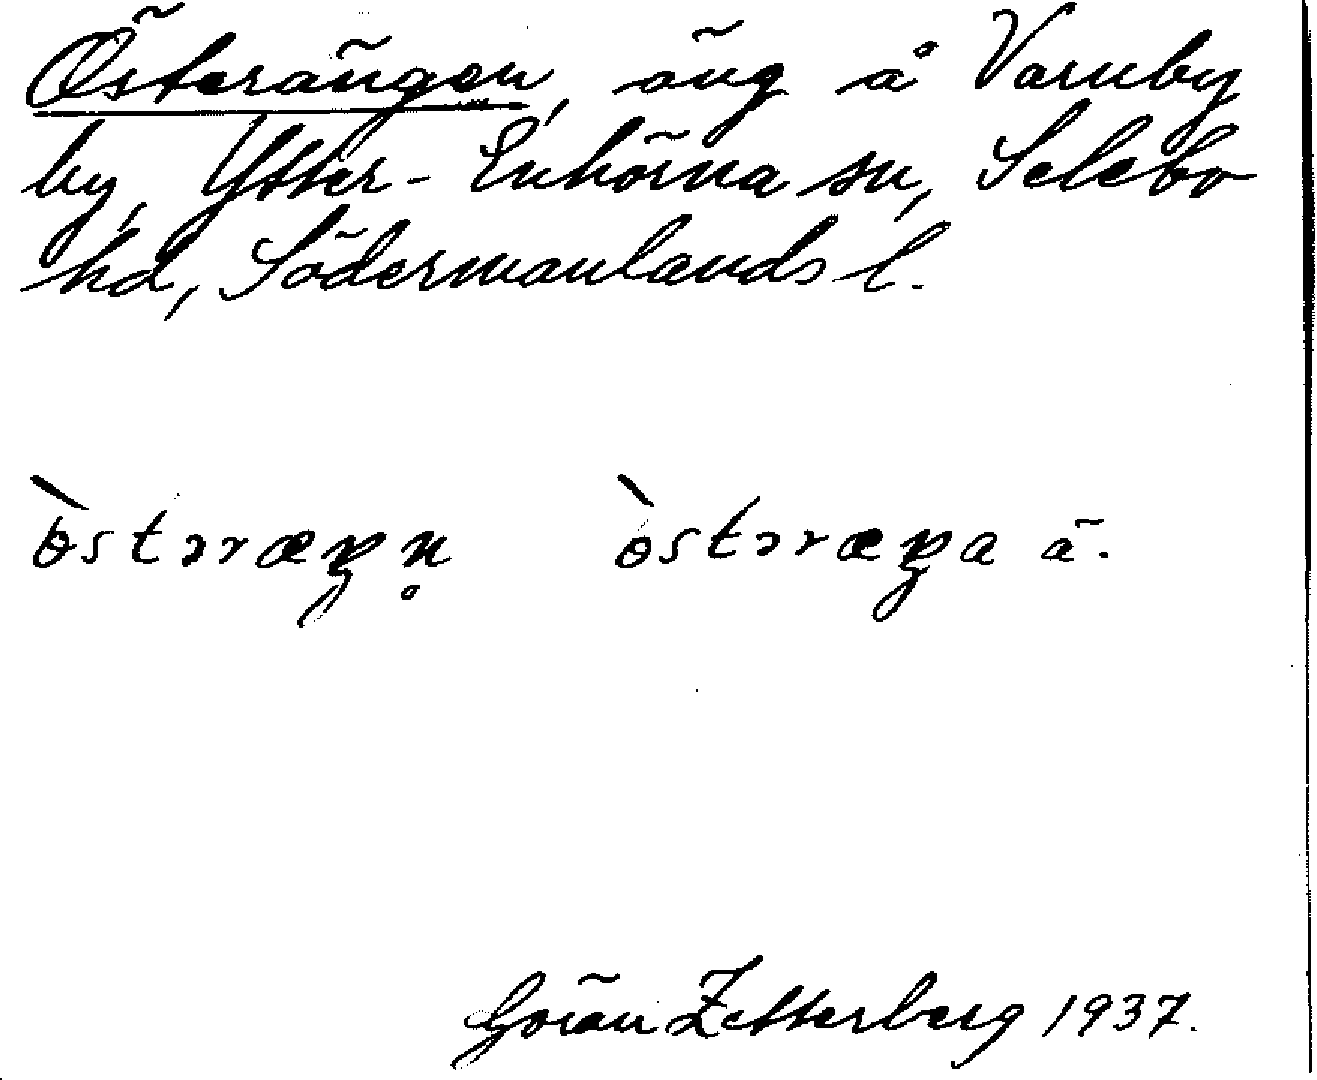 Österängen, äng å Varnby
by, Ytter-Enhörna sn, Selebo
hd, Södermanlands l.
ɵ̀stərræŋn̥ ɵ̀stərræŋa ä.
Göran Zetterberg 1937.